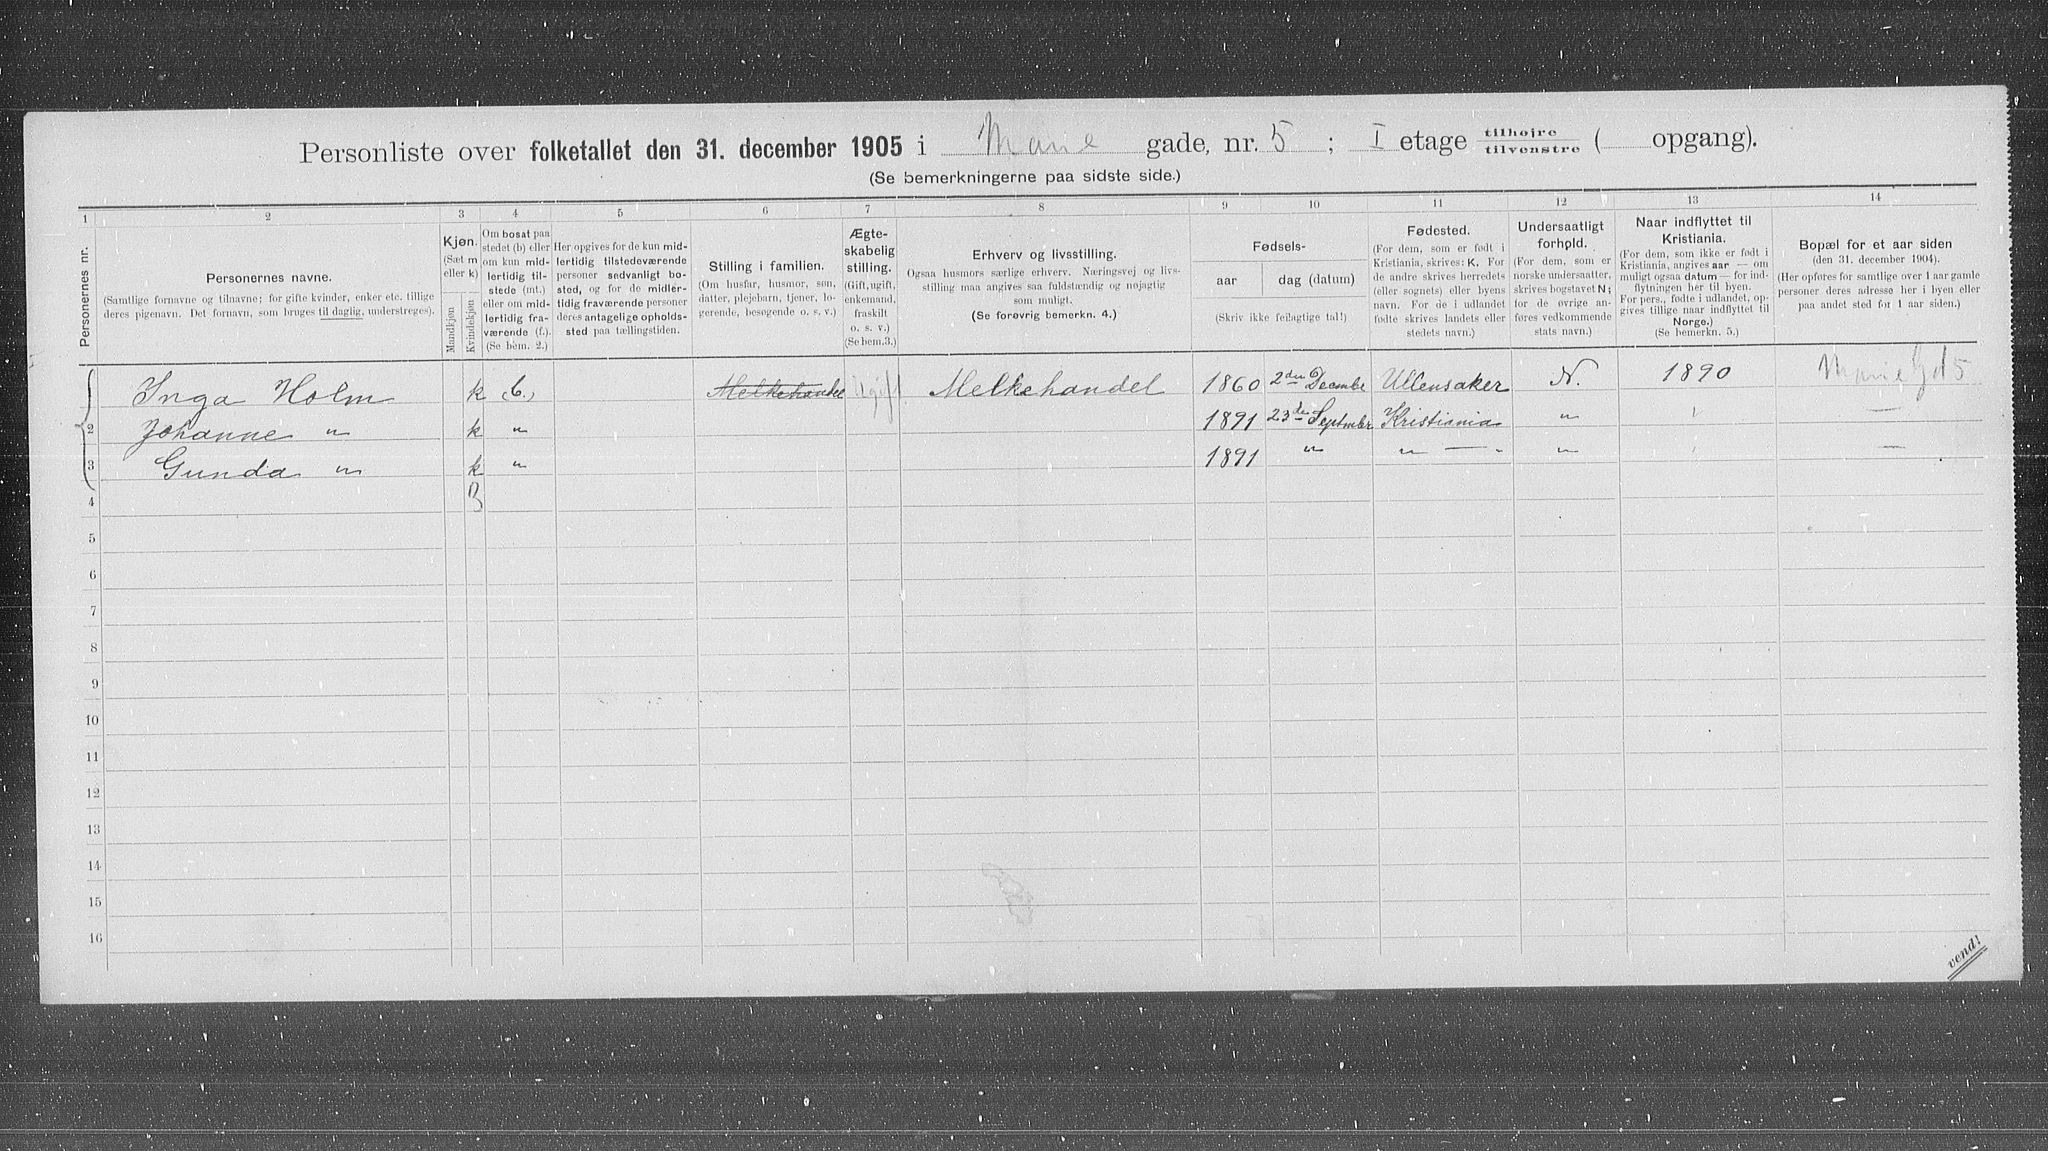 Personliste over folketallet den 31. december 1905 i Marie gade, nr. 5 ; I etage tilhøjre tilvenstre ( opgang).
(Se bemerkningerne paa sidste side.)
1 2 3 4 5 6 7 8 9 10 11 12 13 14
Personernes nr.
Personernes navne.
(Samtlige fornavne og tilnavne; for gifte kvinder, enker etc. tillige
deres pigenavn. Det fornavn, som bruges til daglig, understreges).
Kjøn.
(Sæt m
eller k)
Mandkjøn
Kvindekjøn
Om bosat paa
stedet (b) eller
om kun mid-
lertidig til-
stede (mt.)
eller om mid-
lertidig fra-
værende (f.).
(Se bem. 2.)
Her opgives for de kun mid-
lertidig tilstedeværende
personer sedvanligt bo-
sted, og for de midler-
tidig fraværende personer
deres antagelige opholds-
sted paa tællingstiden.
Stilling i familien.
(Om husfar, husmor, søn,
datter, plejebarn, tjener, lo-
gerende, besøgende o. s. v.)
Ægte-
skabelig
stilling.
(Gift, ugift,
enkemand,
fraskilt
o. s. v.)
(Se bem.3.)
Erhverv og livsstilling.
Ogsaa husmors særlige erhverv. Næringsvej og livs-
stilling maa angives saa fuldstændig og nøjagtig
som muligt.
(Se forøvrig bemerkn. 4.)
Fødsels-
aar dag (datum)
(Skriv ikke feilagtige tal!)
Fødested.
(For dem, som er født i
Kristiania, skrives: K. For
de andre skrives herredets
(eller sognets) eller byens
navn. For de i udlandet
fødte skrives landets eller
stedets navn.)
Undersaatligt
forhold.
(For dem, som er
norske undersaatter,
skrives bogstavet N;
for de øvrige an-
føres vedkommende
stats navn.)
Naar indflyttet til
Kristiania.
(For dem, som ikke er født i
Kristiania, angives aar — om
muligt ogsaa datum — for ind-
flytningen her til byen.
For pers., fødte i udlandet, op-
gives tillige naar indflyttet til
Norge.)
(Se bemerkn. 5.)
Bopæl for et aar siden
(den 31. december 1904).
(Her opføres for samtlige over 1 aar gamle
personer deres adresse her i byen eller
paa andet sted for 1 aar siden.)
Inga Holm k (b.) Melkehandel Ugift Melkehandel 1860 2den Decembe Ullensaker N. 1890 Marie Gd 5
2 Johanne " k " 1891 23de Septmber Kristiania " —
3 Gunda " k " 1891 " " — " " —
4
5
6
7
8
9
10
11
12
13
14
15
16
vend!